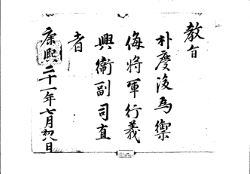 教旨
朴慶後為禦
侮將軍行義
興衛副司直
者
康熙二十一年七月初八日